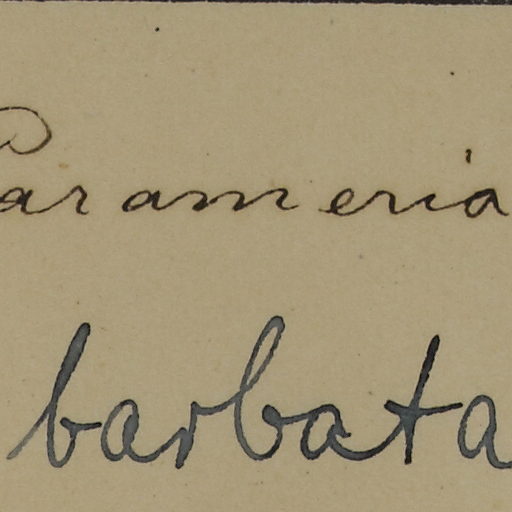 Parameria
barbata